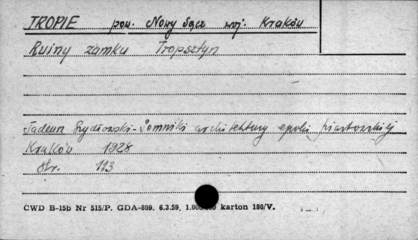 TROPIE pow. Nowy Sącz woj. Kraków
Ruiny zamku Tropsztyn
Tadeusz Szydłowski - Pomniki architektury epoki piastowskiej
Kraków 1928
Str. 113
CWD B-15b Nr 515/P. GDA-809. 6.3.59. karton 180/V.